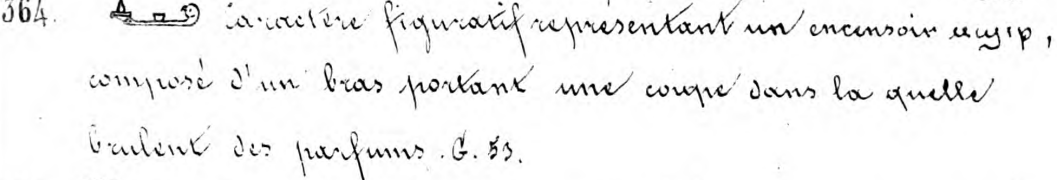 364. Caractère figuratif représentant un encensoir égyp,
composé d'un bras portant une coupe dans la quelle
brulent des parfums. G. 53.